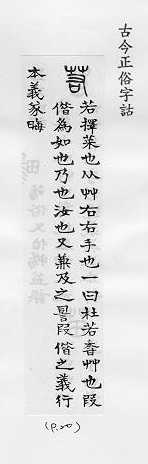 古今正俗字詁
若
若擇菜也从艸右右手也一曰杜若香艸也叚
偕為如也乃也汝也又兼及之詈叚偕之義行
本義冡晦
(P.20)